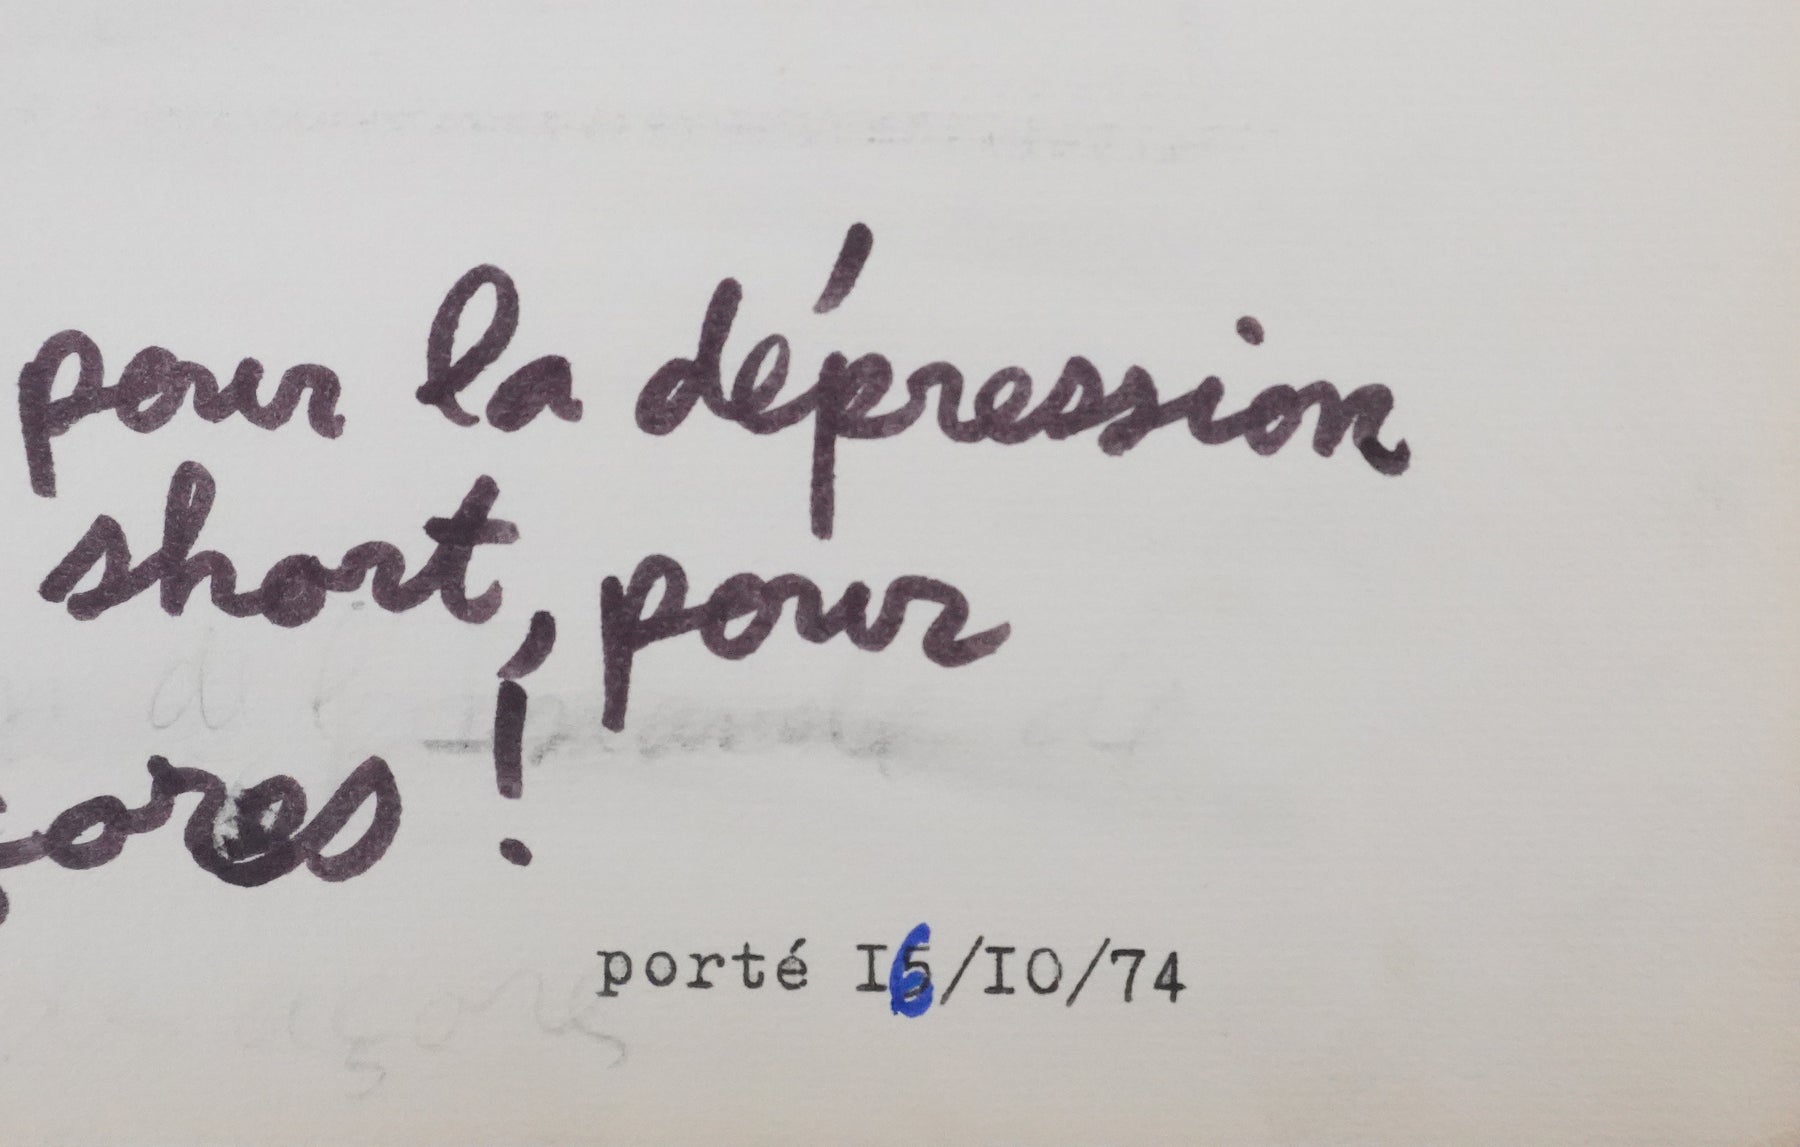 pour la dépression
short, pour
çores !
porté I6/IO/74